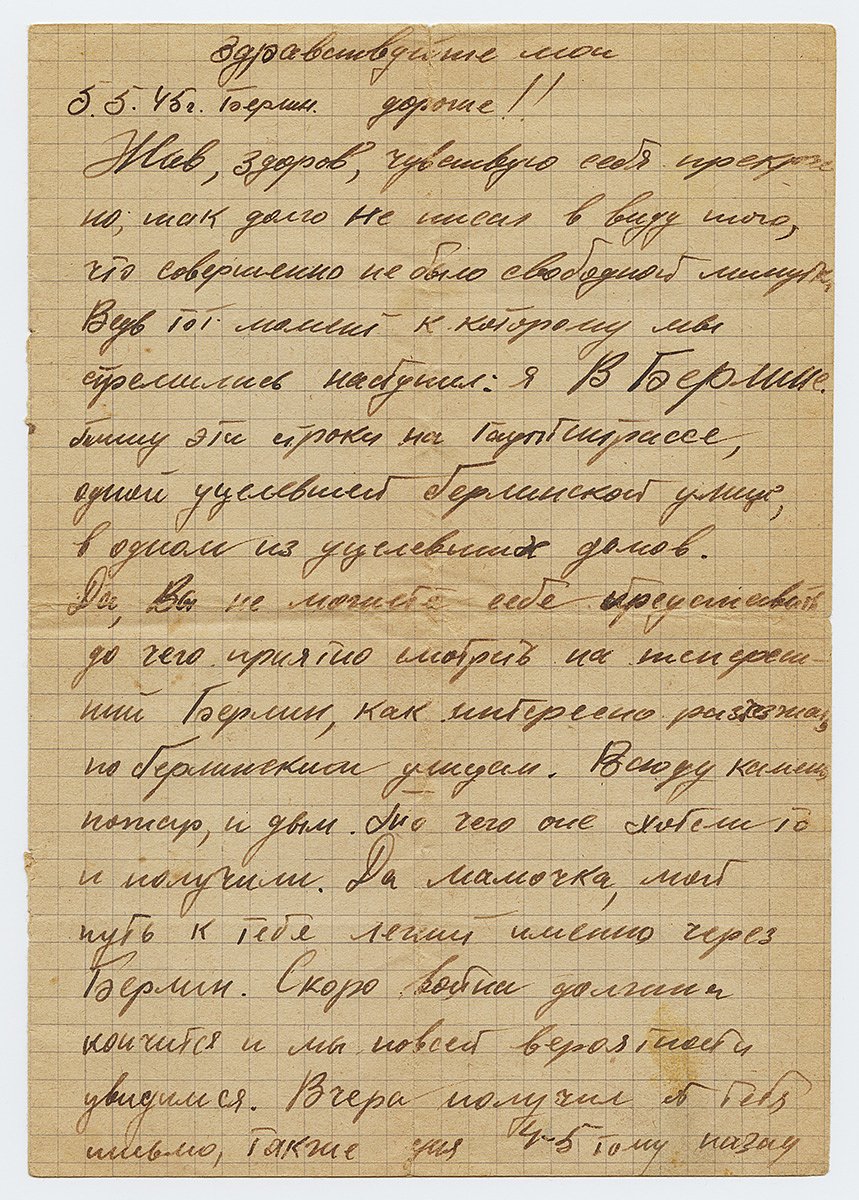 Здравствуйте мои
5.5.45г. Берлин. дорогие!!
Жив, здоров, чувствую себя прекрас
но, так долго не писал в виду того,
что совершенно не было свободной минутки,
Ведь тот момент к которому мы
стремились наступил: я в Берлине.
пишу эти строки на Гауптштрассе,
одной уцелевшей берлинской улице,
в одном из уцелевших домов.
Да, Вы не можете себе представить
до чего приятно смотреть на теглереш-
ний Берлин, как интересно разъезжать
по берлинским улицам. Всюду камень,
пожар, и дым. То чего они хотели то
и получили. Да мамочка, мой
путь к тебе лежит именно через
Берлин. Скоро война должна
кончится и мы по всей вероятности
увидимся. Вчера получил от тебя
письмо, также дня 4-5 тому назад